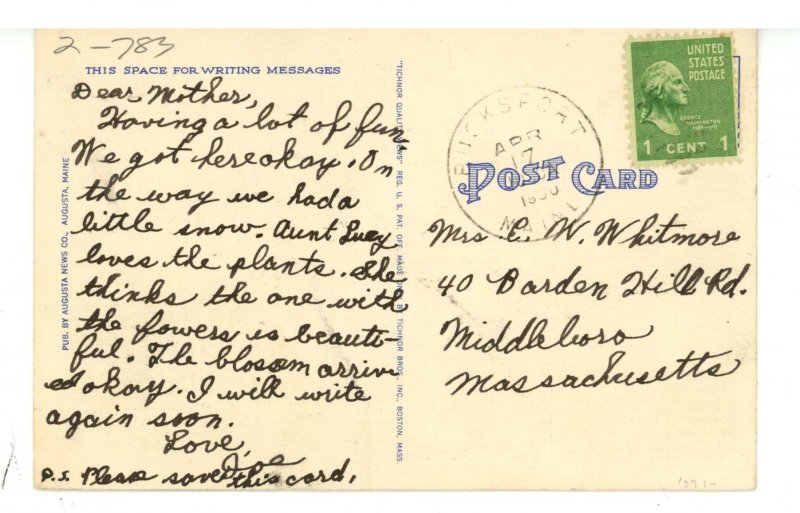 2-783
THIS SPACE FOR WRITING MESSAGES
Dear Mother,
Having a lot of fun.
We got here okay. On
the way we had a
little snow. Aunt Lucy
loves the plants. She
thinks the one with
the fowers is beauti-
ful. The blosom arriv
ed okay. I will write
again soon.
Love,
P.S. Please save this card.
PUB. BY AUGUSTA NEWS CO., AUGUSTA, MAINE
"TICHNOR QUALITY VIEWS" REG. U. S. PAT. OFF. MADE ONLY BY TICHNOR BROS., INC., BOSTON, MASS.
BUCKSPORT
APR
17
MAINE
UNITED
STATES
POSTAGE
GEORGE
WASHINGTON
1789-1797
1 CENT 1
POST CARD
Mrs C. W. Whitmore
40 Barden Hill Rd.
Middleboro
Massachusetts